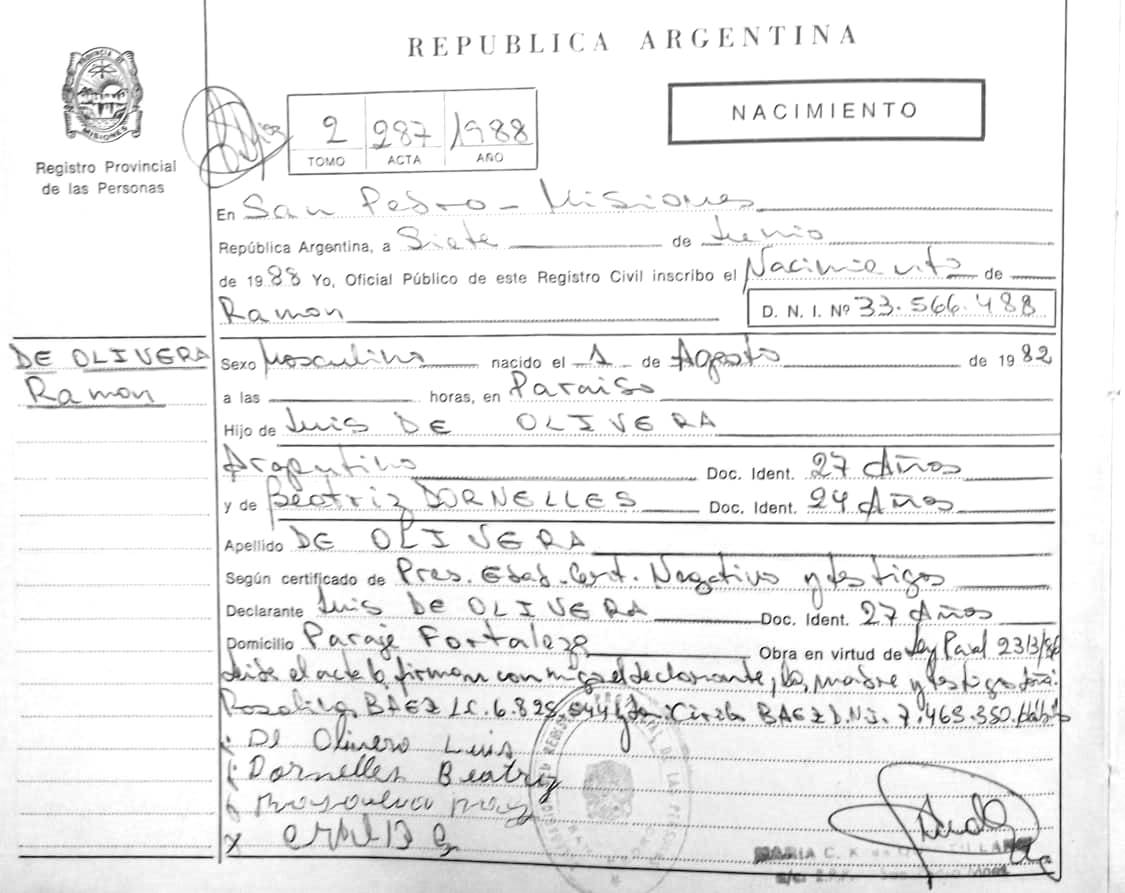 REPUBLICA ARGENTINA
PROVINCIA DE
MISIONES
Registro Provincial
de las Personas
2 287 1988
TOMO ACTA AÑO
NACIMIENTO
En San Pedro - Misiones
República Argentina, a Siete de Junio
de 1988 Yo, Oficial Público de este Registro Civil inscribo el Nacimiento de
Ramon D. N. I. Nº 33.566.488
DE OLIVERA
Ramon
Sexo Masculino nacido el 1 de Agosto de 1982
a las horas, en Paraiso
Hijo de Luis DE OLIVERA
Argentino Doc. Ident. 27 Años
y de Beatriz DORNELLES Doc. Ident. 24 Años
Apellido DE OLIVERA
Según certificado de Pres. Edad. Cert. Negativo y testigos
Declarante Luis DE OLIVERA Doc. Ident. 27 Años
Domicilio Paraje Fortaleza Obra en virtud de Ley
el acta la firman conmigo el declarante, la madre y testigos
BAEZ L.C. 6.825.944 y BAEZ D.N.I. 7.463.350
De Olivero Luis
Dornelles Beatriz
MARIA C.